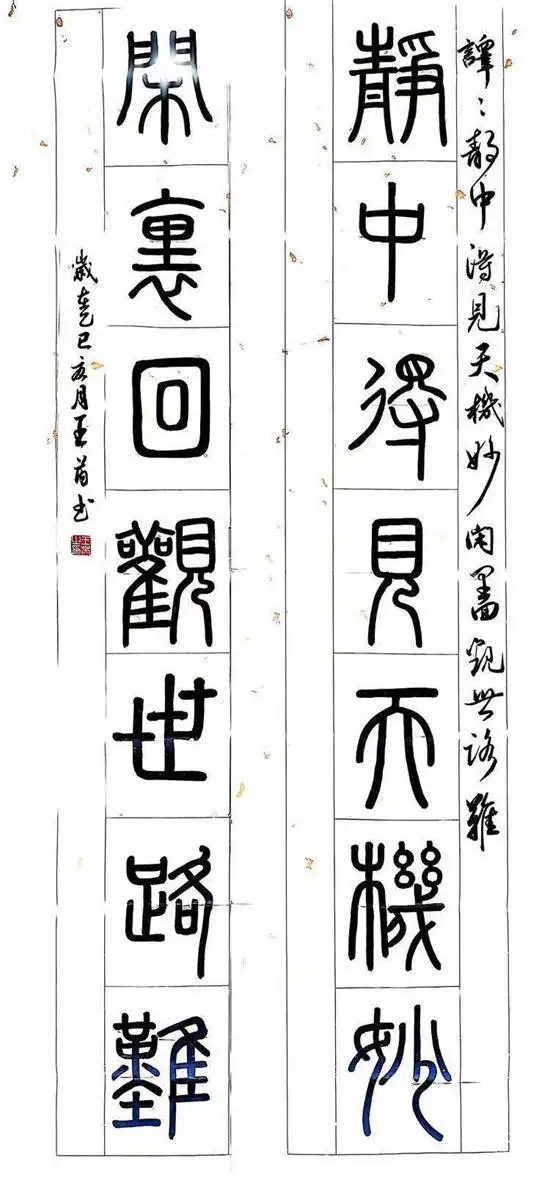 譯：静中得見天機妙閑裏回觀世路難
靜中得見天機妙
閑裏回觀世路難
歲在乙巳亥月王书